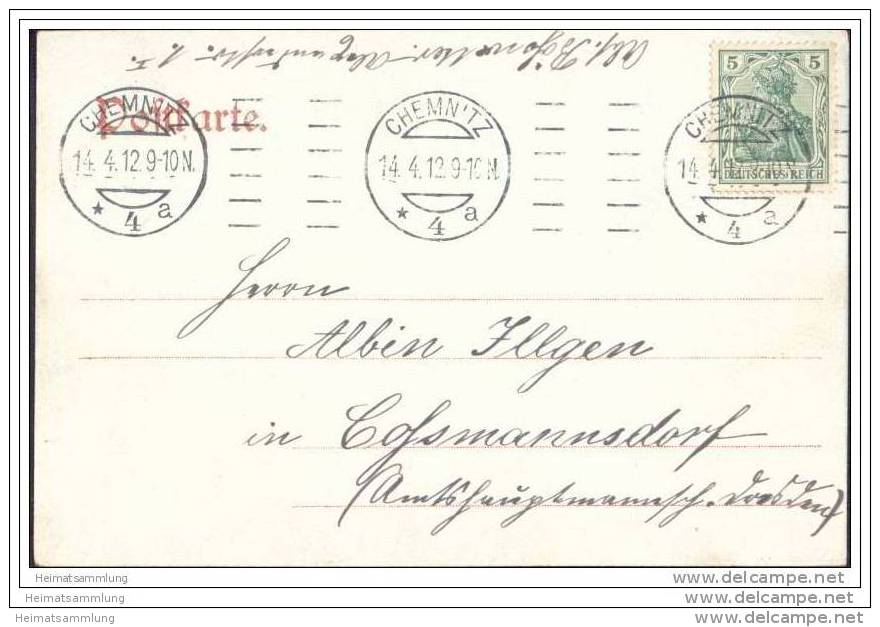 Postkarte.
CHEMNITZ
14. 4. 12. 9-10 N.
* 4 a
CHEMNITZ
14. 4. 12. 9-10 N.
* 4 a
CHEMNITZ
14. 4.
* 4 a
5 5
DEUTSCHES REICH
Herrn
Albin Illgen
in Coßmannsdorf
(Amtshauptmannsch. Dresden)
Heimatsammlung
www.delcampe.net
Heimatsammlung
www.delcampe.net
Heimatsammlung
www.delcampe.net